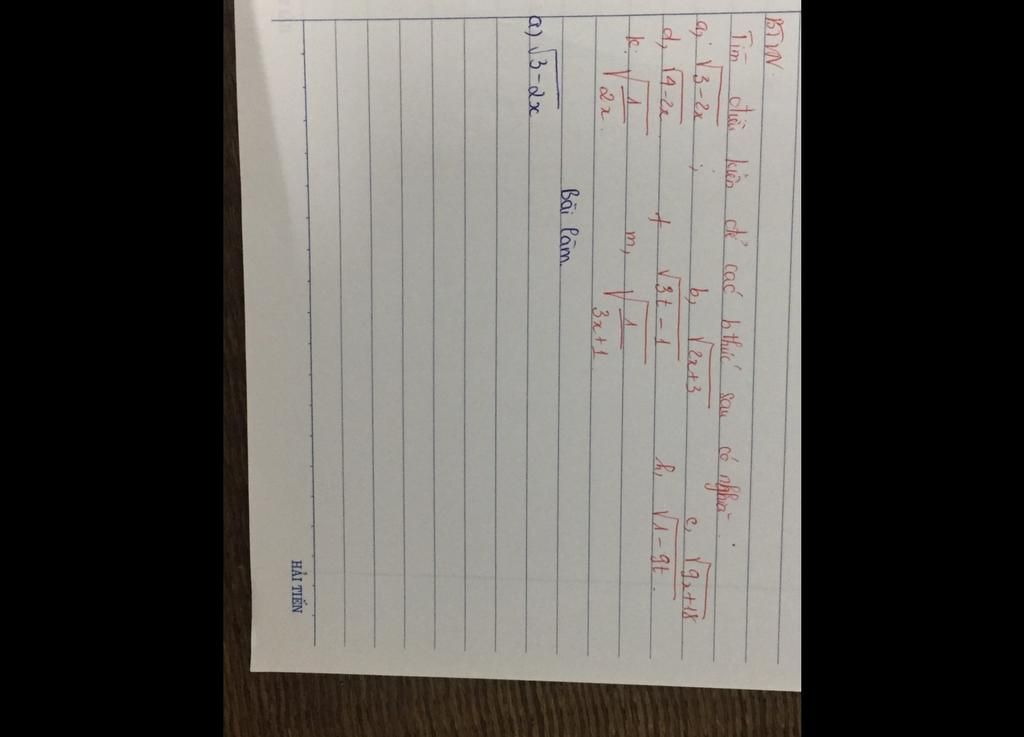 BTVN.
Tìm điều kiện để các bthức sau có nghĩa.
a, √3-2x ; b, √2x+3 c, √9x+18
d, √4-2x f √3t-1 h, √1-9t.
k: √1/2x. m, √1/3x+1.
Bài làm
a) √3-2x
HẢI TIẾN